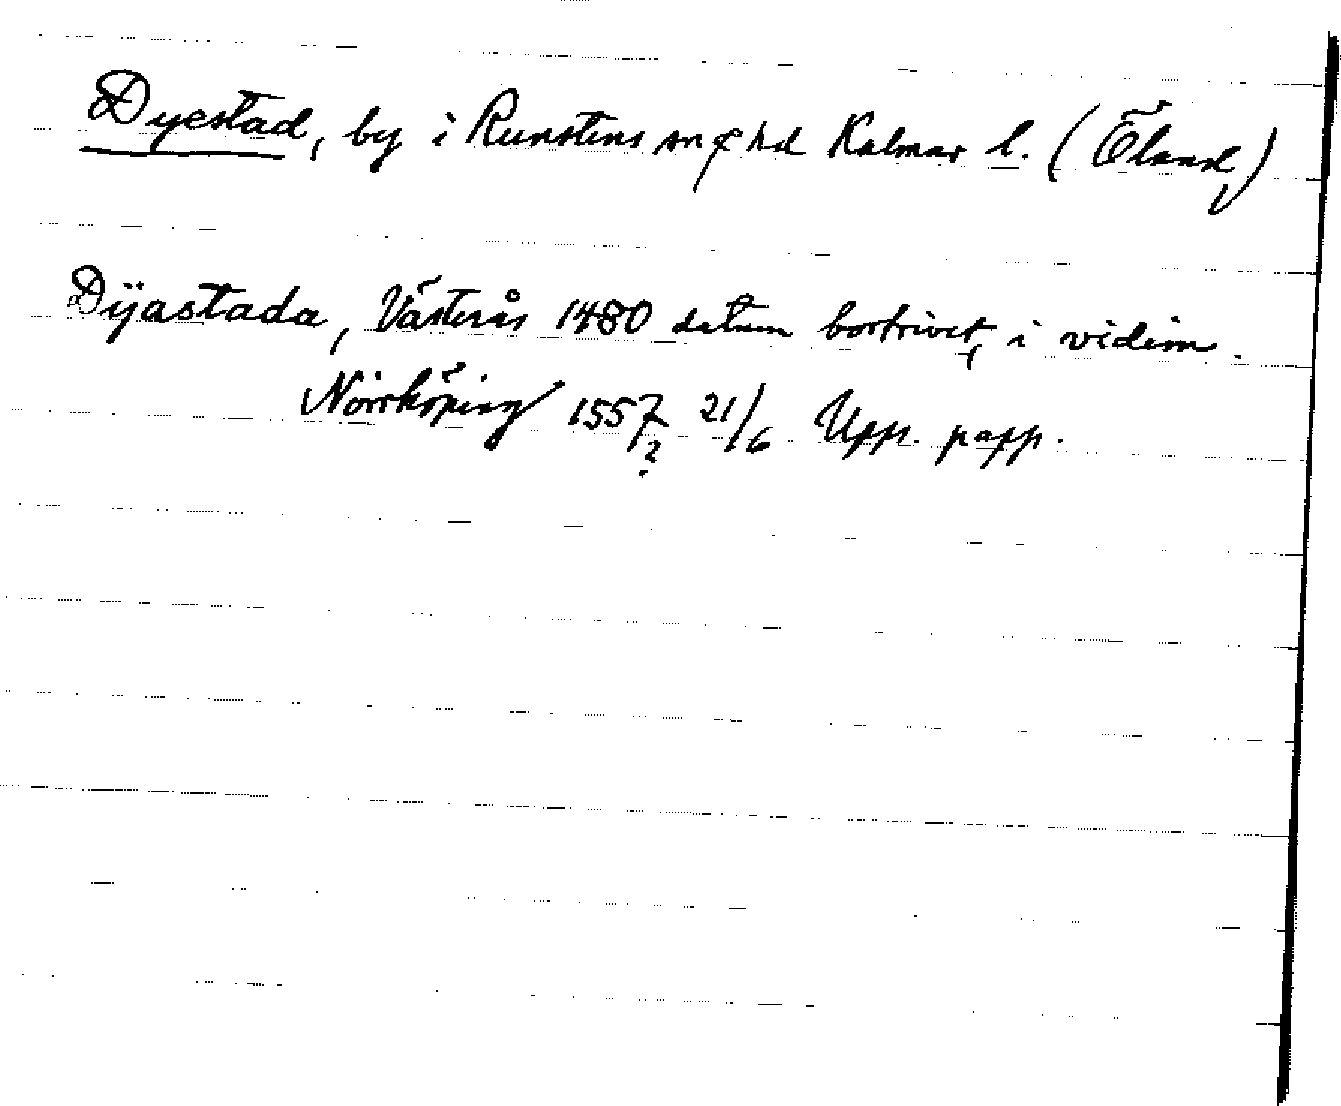 Dyestad, by i Runstens sn o hd Kalmar l. (Öland)
Dÿastada, Västerås 1480 datum bortrivet, i vidim.
Norrköping 1557 21/6 Upp. papp.
?